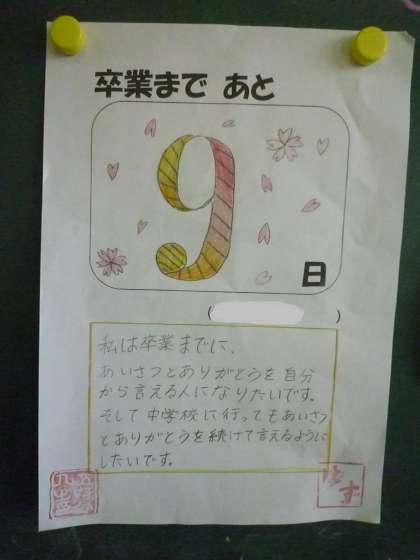 卒業まで あと
9
日
(　　　)
私は卒業までに、
あいさつとありがとうを自分
から言える人になりたいです。
そして中学校に行ってもあいさつ
とありがとうを続けて言えるように
したいです。
ゆず